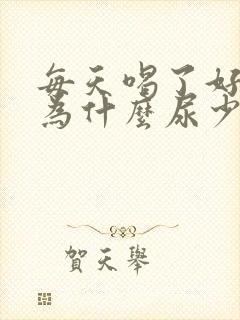 每天喝了好
為什麼尿少
賀天舉